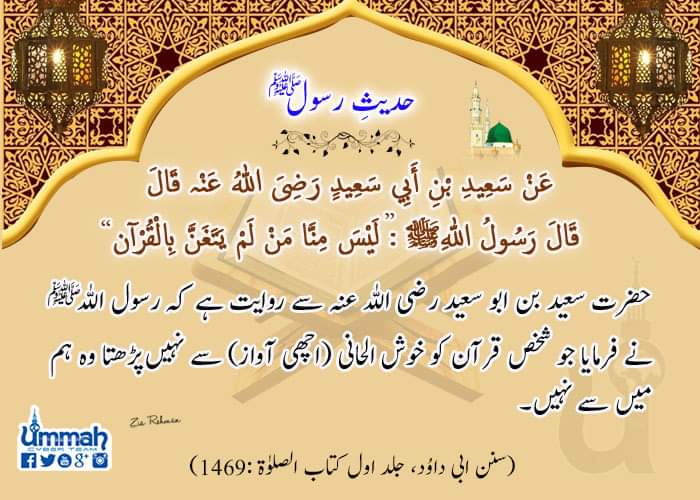 حدیثِ رسولﷺ
عَنْ سَعِيدِ بْنِ أَبِي سَعِيدٍ رَضِىَ اللهُ عَنْہ قَالَ
قَالَ رَسُولُ اللهِﷺ :”لَيْسَ مِنَّا مَنْ لَمْ يَتَغَنَّ بِالْقُرْآن“
حضرت سعید بن ابو سعید رضی اللہ عنہ سے روایت ہے کہ رسول اللہﷺ
نے فرمایا جو شخص قرآن کو خوش الحانی (اچھی آواز) سے نہیں پڑھتا وہ ہم
میں سے نہیں۔
Zia Rehman
ummah
CYBER TEAM
(سنن ابی داؤد، جلد اول کتاب الصلوٰۃ :1469)